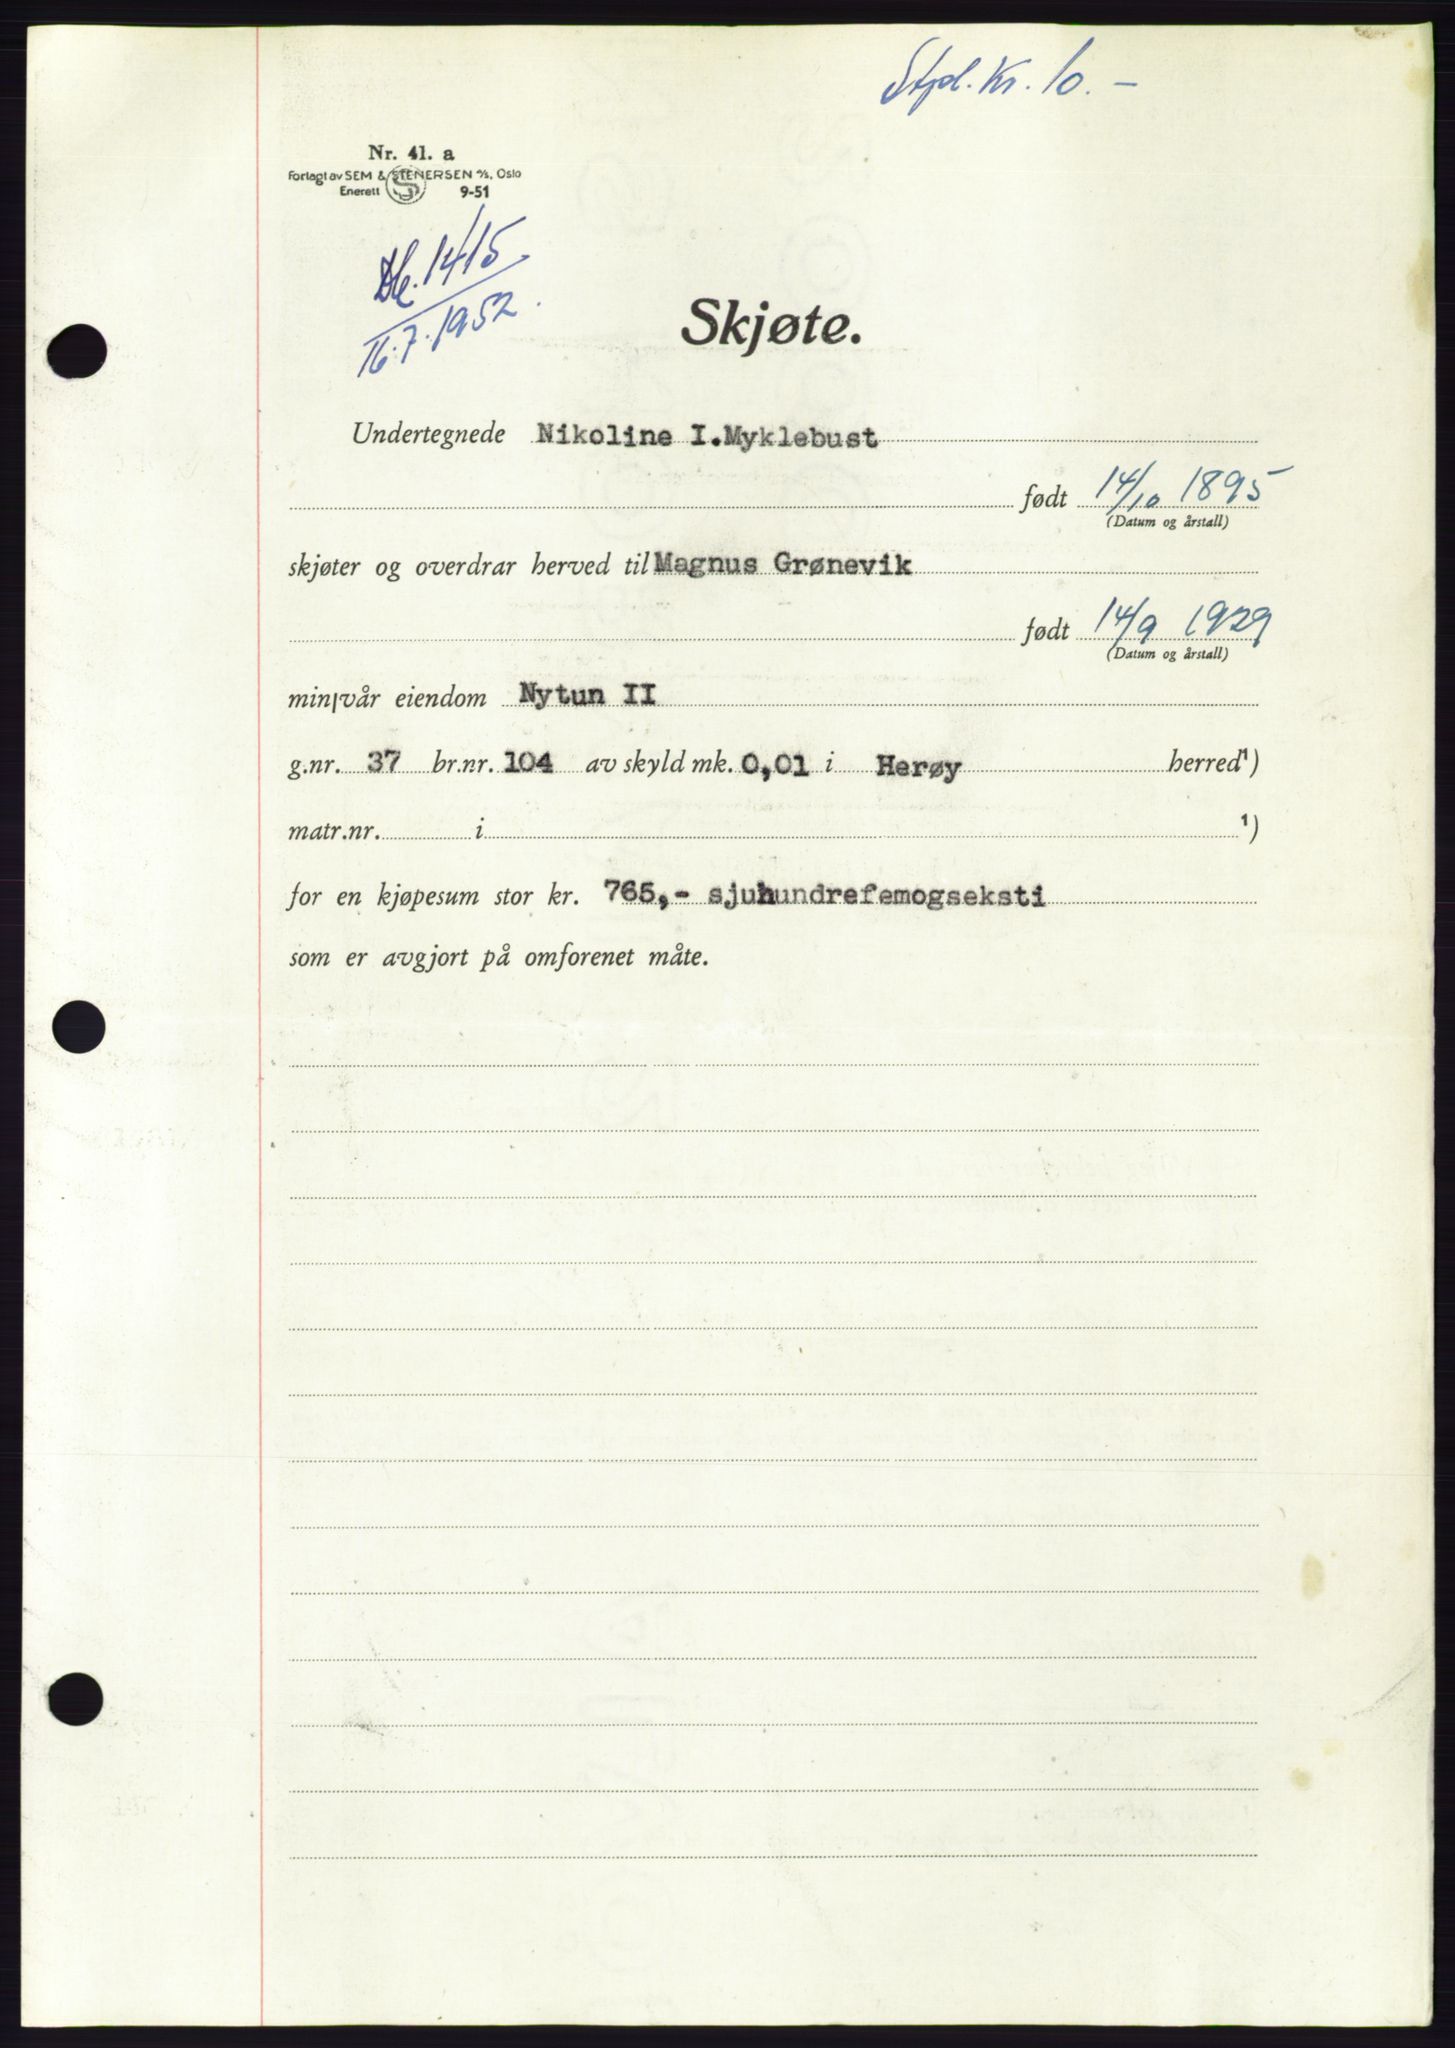 Stpl. Kr. 10. –
Nr. 41. a
Forlagt av SEM & STENERSEN A/S, Oslo
Enerett S 9-51
Db. 1415
16.7.1952.
Skjøte.
Undertegnede Nikoline I.Myklebust
født 14/10 1895
(Datum og årstall)
skjøter og overdrar herved til Magnus Grønevik
født 14/9 1929
(Datum og årstall)
min/vår eiendom Nytun II
g.nr. 37 br.nr. 104 av skyld mk. 0,01 i Herøy herred¹)
matr.nr. i ¹)
for en kjøpesum stor kr. 765,- sjuhundrefemogseksti
som er avgjort på omforenet måte.